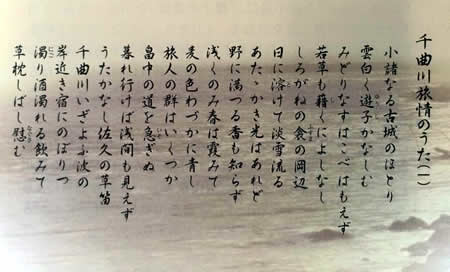 千曲川旅情のうた(一)
小諸なる古城のほとり
雲白く遊子かなしむ
みどりなすはこべはもえず
若草も藉くによしなし
しろがねの衾の岡辺
日に溶けて淡雪流る
あたゝかき光はあれど
野に満つる香も知らず
浅くのみ春は霞みて
麦の色わづかに青し
旅人の群はいくつか
畠中の道を急ぎぬ
暮れ行けば浅間も見えず
うたかなし佐久の草笛
千曲川いざよふ波の
岸近き宿にのぼりつ
濁り酒濁れる飲みて
草枕しばし慰む